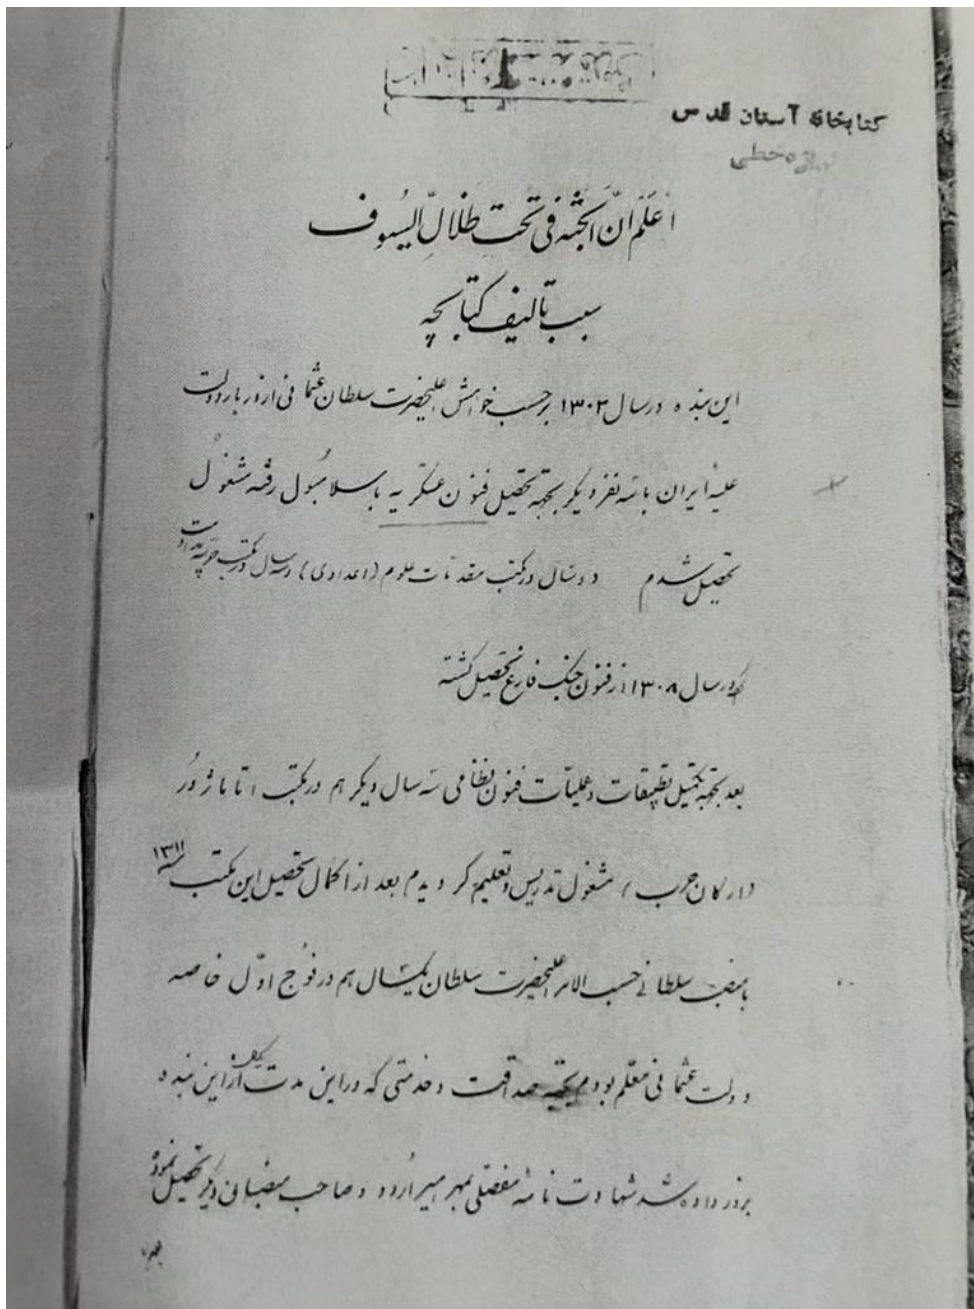 کتابخانه آستان قدس
خطی
اعلم انّ الجنّه فی تحت ظلال السیوف
سبب تالیف کتابچه
این بنده در سال ۱۳۰۳ برحسب خواهش اعلیحضرت سلطان عثمانی از دربار دولت
علیهٔ ایران با سه نفر دیگر بجهة تحصیل فنون عسکریه باسلامبول رفته مشغول
تحصیل شدم دو سال در مکتب مقدمات علوم (اعدادی) و سه سال در مکتب حربیه
که در سال ۱۳۰۸ از فنون جنگ فارغ تحصیل گشته
بعد بجهة تکمیل تطبیقات و عملیات فنون نظامی سه سال دیگر هم در مکتب اتاماژور
(ارکان حرب) مشغول تدریس و تعلیم گردیدم بعد از اکمال تحصیل این مکتب ۱۳۱۱
بامنصب سلطانی حسب الامر اعلیحضرت سلطان یکسال هم در فوج اوّل خاصه
دولت عثمانی معلّم بودم بجهة صداقت و خدمتی که در این مدت از این بنده
بروز داده شد شهادت نامهٔ مفصّلی بمهر امیر اردو و صاحب منصبان دیگر تحصیل نموده